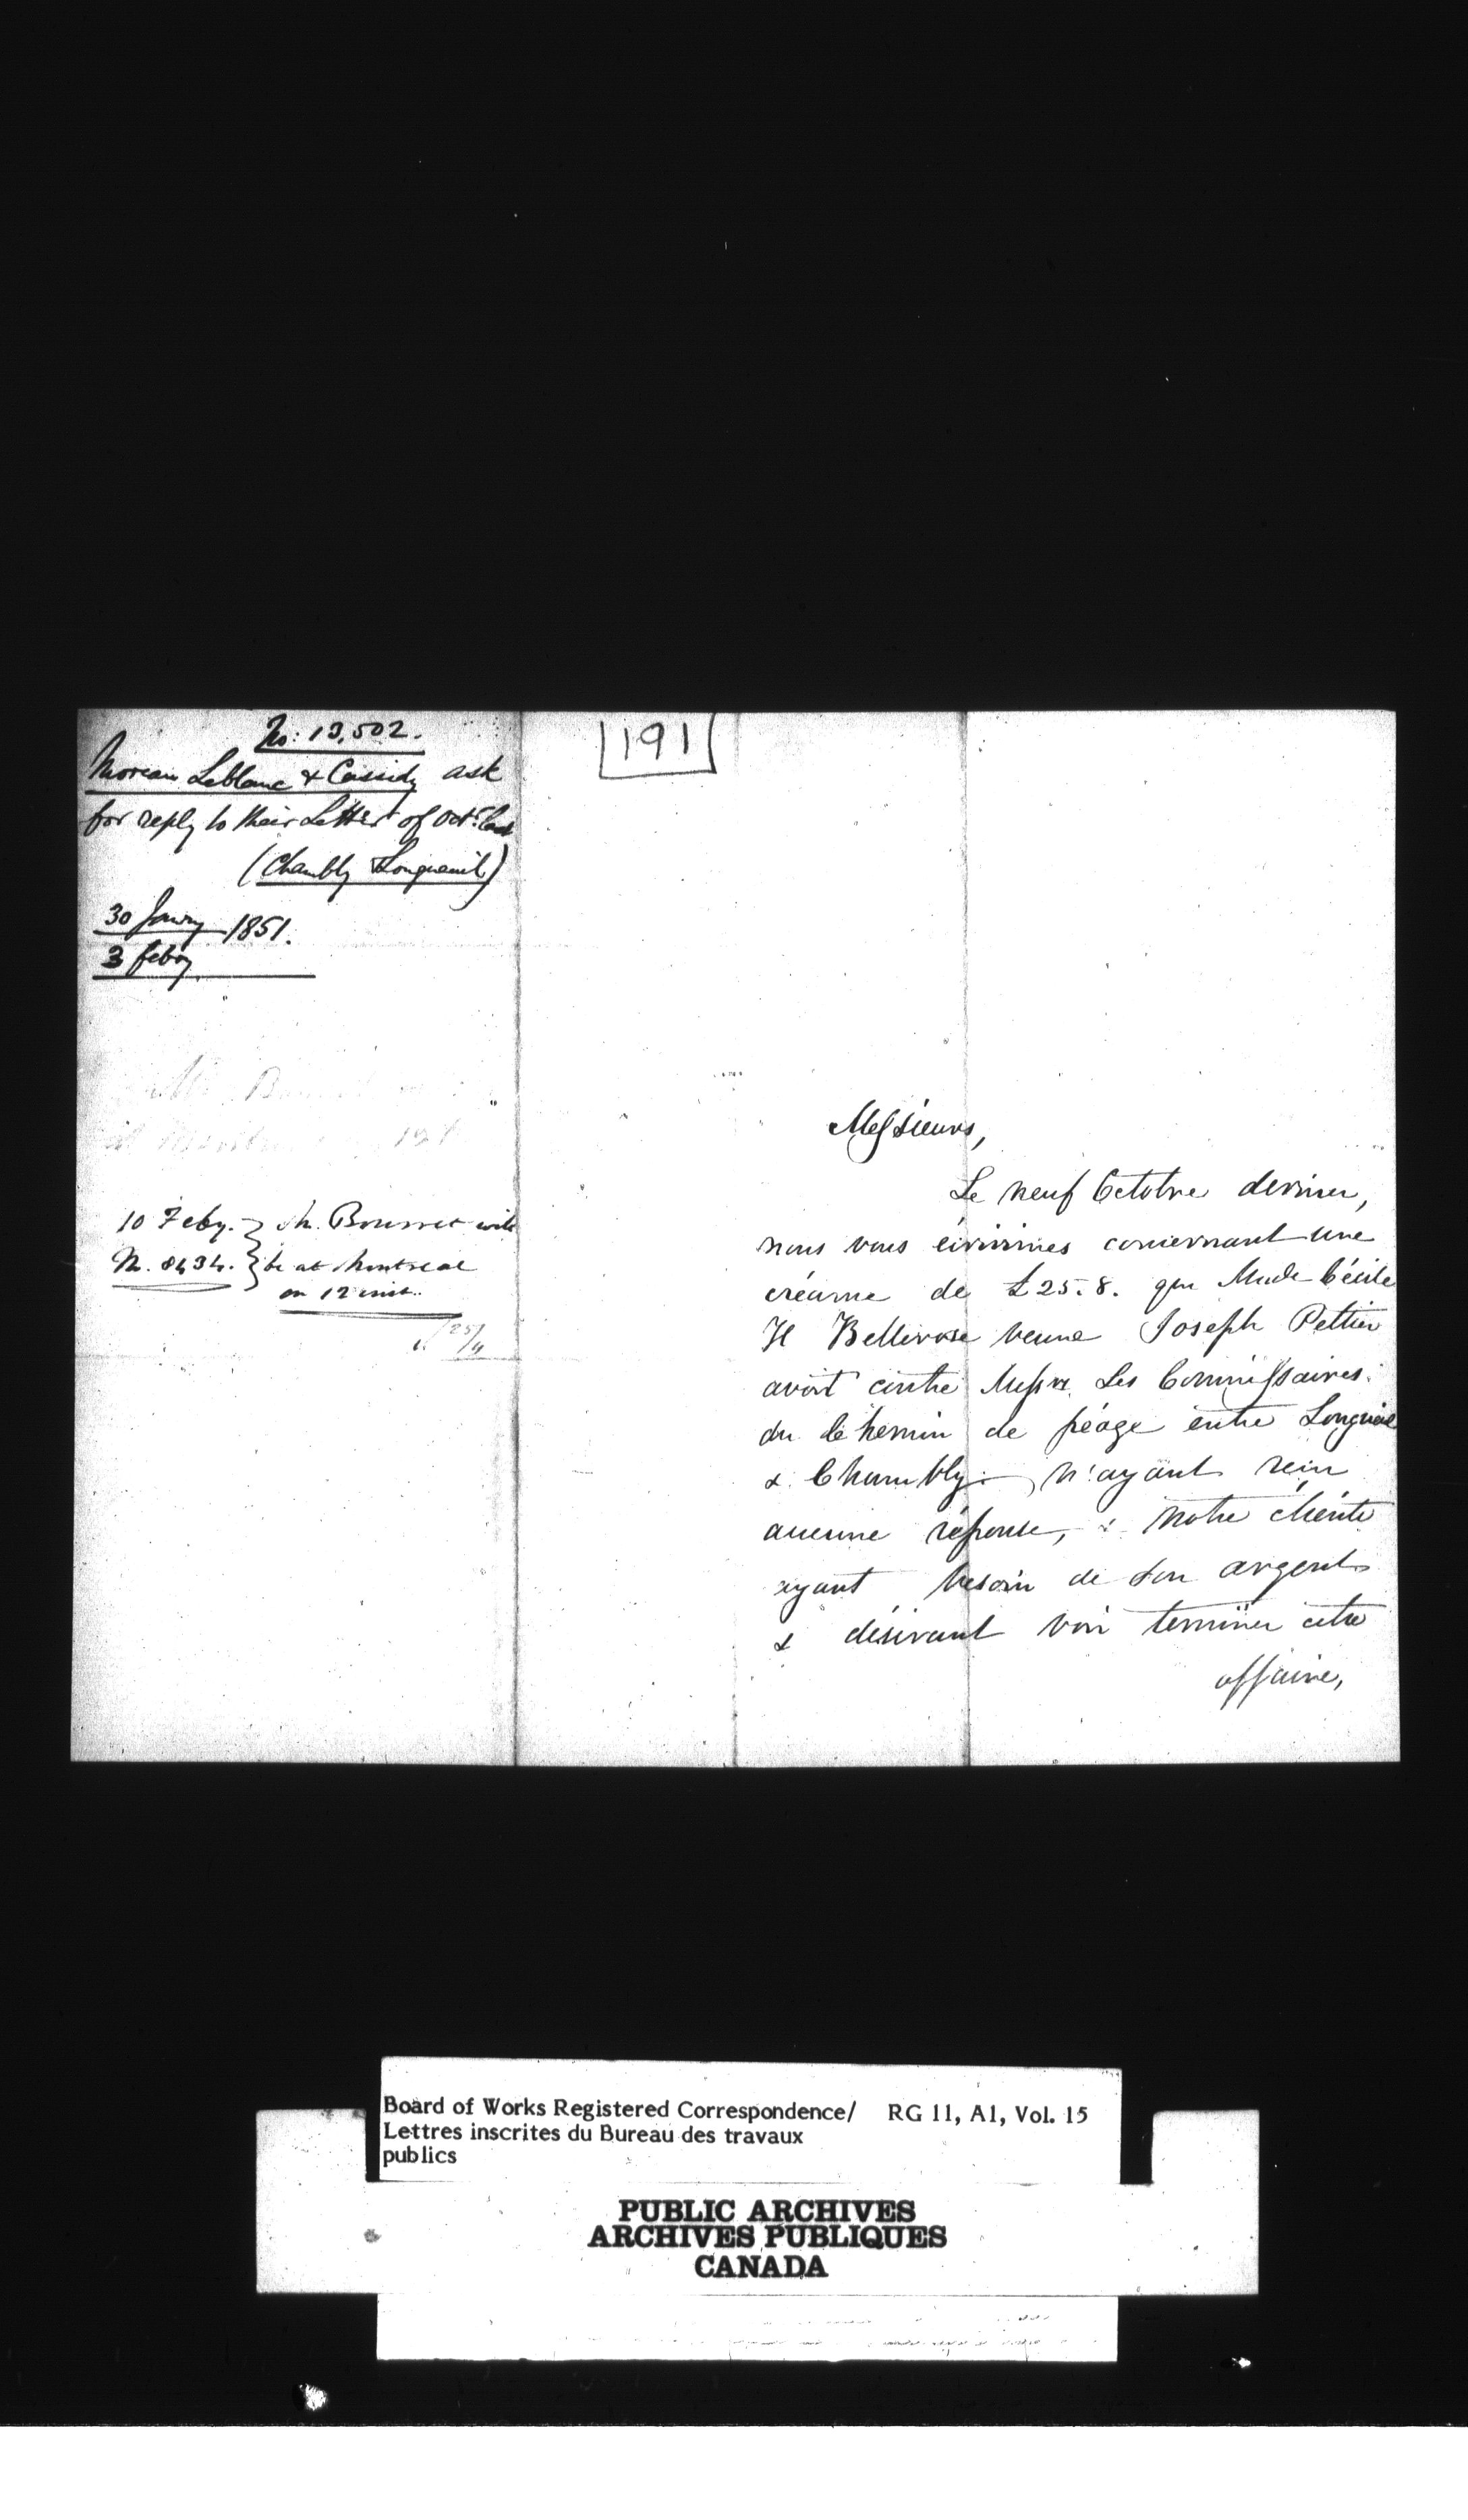 No: 13,502.
Moreau Leblanc & Cassidy ask
for reply to their Letter of Oct: last
(Chambly & Longueuil)
30 Janry 1851.
3 Febry
10 Feby. } Mr. Bourret will
N. 8434. } be at Montreal
on 12 inst.
191
Messieurs,
Le neuf Octobre dernier,
nous vous écrivimes concernant une
créance de £25.8. que Made Cécile
H Bellerose veuve Joseph Peltier
avoit contre Messrs. Les Commissaires
du Chemin de péage entre Longueuil
& Chambly: n'ayant reçu
aucune réponse, & notre cliente
ayant besoin de son argent
& désirant voir terminer cette
affaire,
Board of Works Registered Correspondence/ RG 11, A1, Vol. 15
Lettres inscrites du Bureau des travaux
publics
PUBLIC ARCHIVES
ARCHIVES PUBLIQUES
CANADA